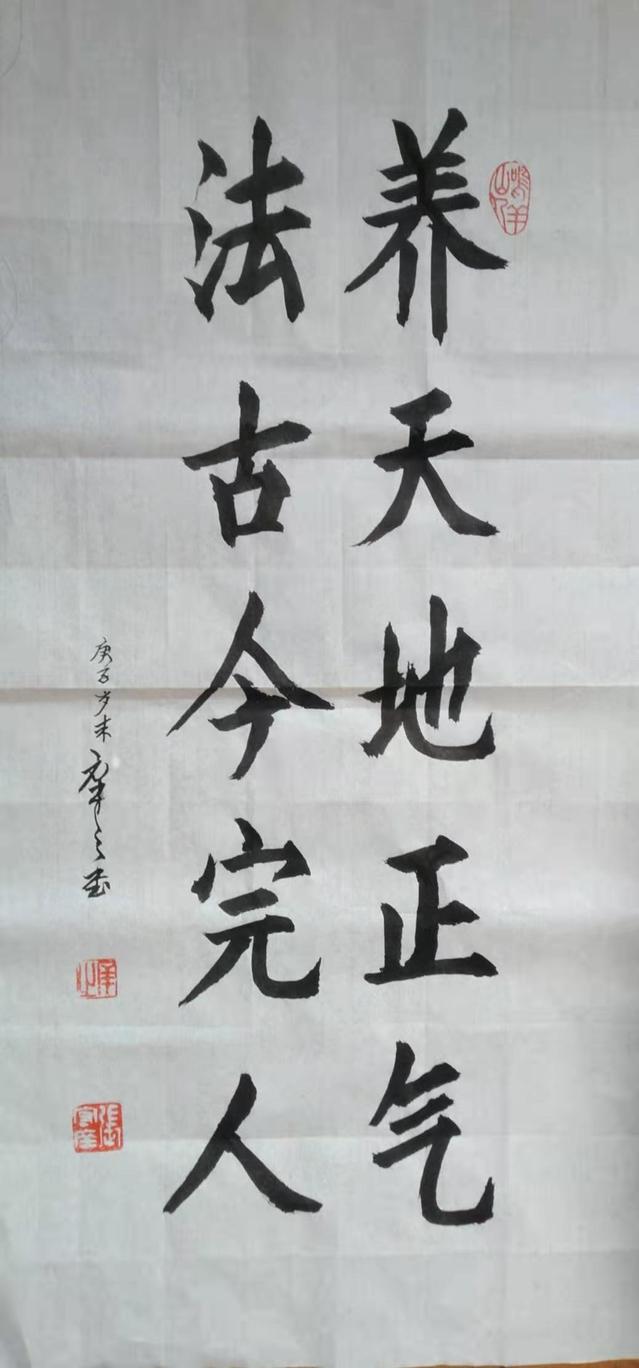 养天地正气
法古今完人
庚子岁末